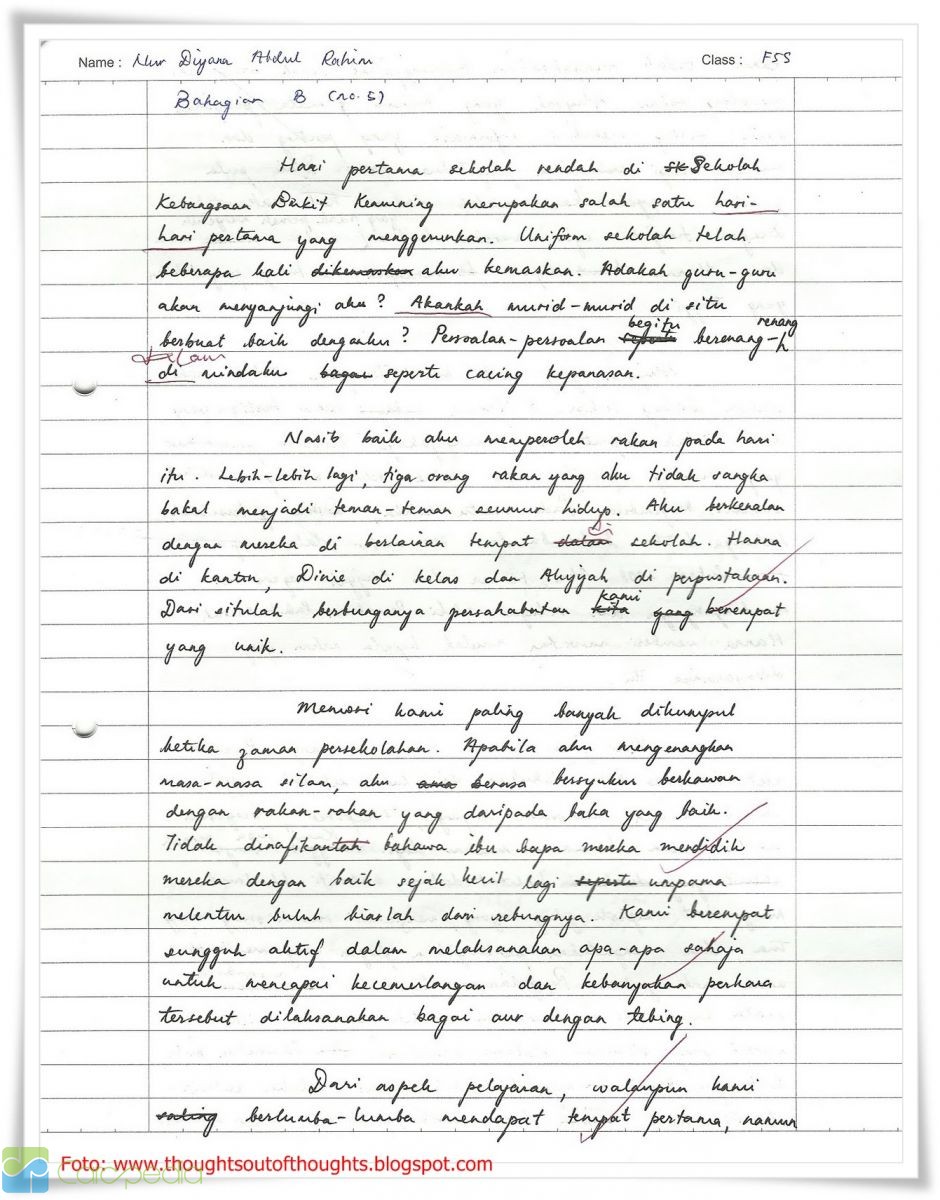 Name : Nur Diyana Abdul Rahim Class : F5S
Bahagian B (no. 5)
Hari pertama sekolah rendah di SK Sekolah
Kebangsaan Bukit Kemuning merupakan salah satu hari-
hari pertama yang menggerunkan. Uniform sekolah telah
beberapa kali dikemaskan aku kemaskan. Adakah guru-guru
akan menyanjungi aku? Akankah murid-murid di situ
begitu renang
berbuat baik denganku? Persoalan-persoalan seperti berenang-
dalam
di mindaku bagai seperti cacing kepanasan.
Nasib baik aku memperoleh rakan pada hari
itu. Lebih-lebih lagi, tiga orang rakan yang aku tidak sangka
bakal menjadi teman-teman seumur hidup. Aku berkenalan
di
dengan mereka di berlainan tempat dalam sekolah. Hanna
di kantin, Dinie di kelas dan Aliyyah di perpustakaan.
kami
Dari situlah berbunganya persahabatan kita yang berempat
yang unik.
Memori kami paling banyak dikumpul
ketika zaman persekolahan. Apabila aku mengenangkan
masa-masa silam, aku ama berasa bersyukur berkawan
dengan rakan-rakan yang daripada baka yang baik.
Tidak dinafikantah bahawa ibu bapa mereka mendidik
mereka dengan baik sejak kecil lagi seperti umpama
melentur buluh biarlah dari rebungnya. Kami berempat
sungguh aktif dalam melaksanakan apa-apa sahaja
untuk mencapai kecemerlangan dan kebanyakan perkara
tersebut dilaksanakan bagai aur dengan tebing.
Dari aspek pelajaran, walaupun kami
saling berlumba-lumba mendapat tempat pertama, namun
Foto: www.thoughtsoutofthoughts.blogspot.com